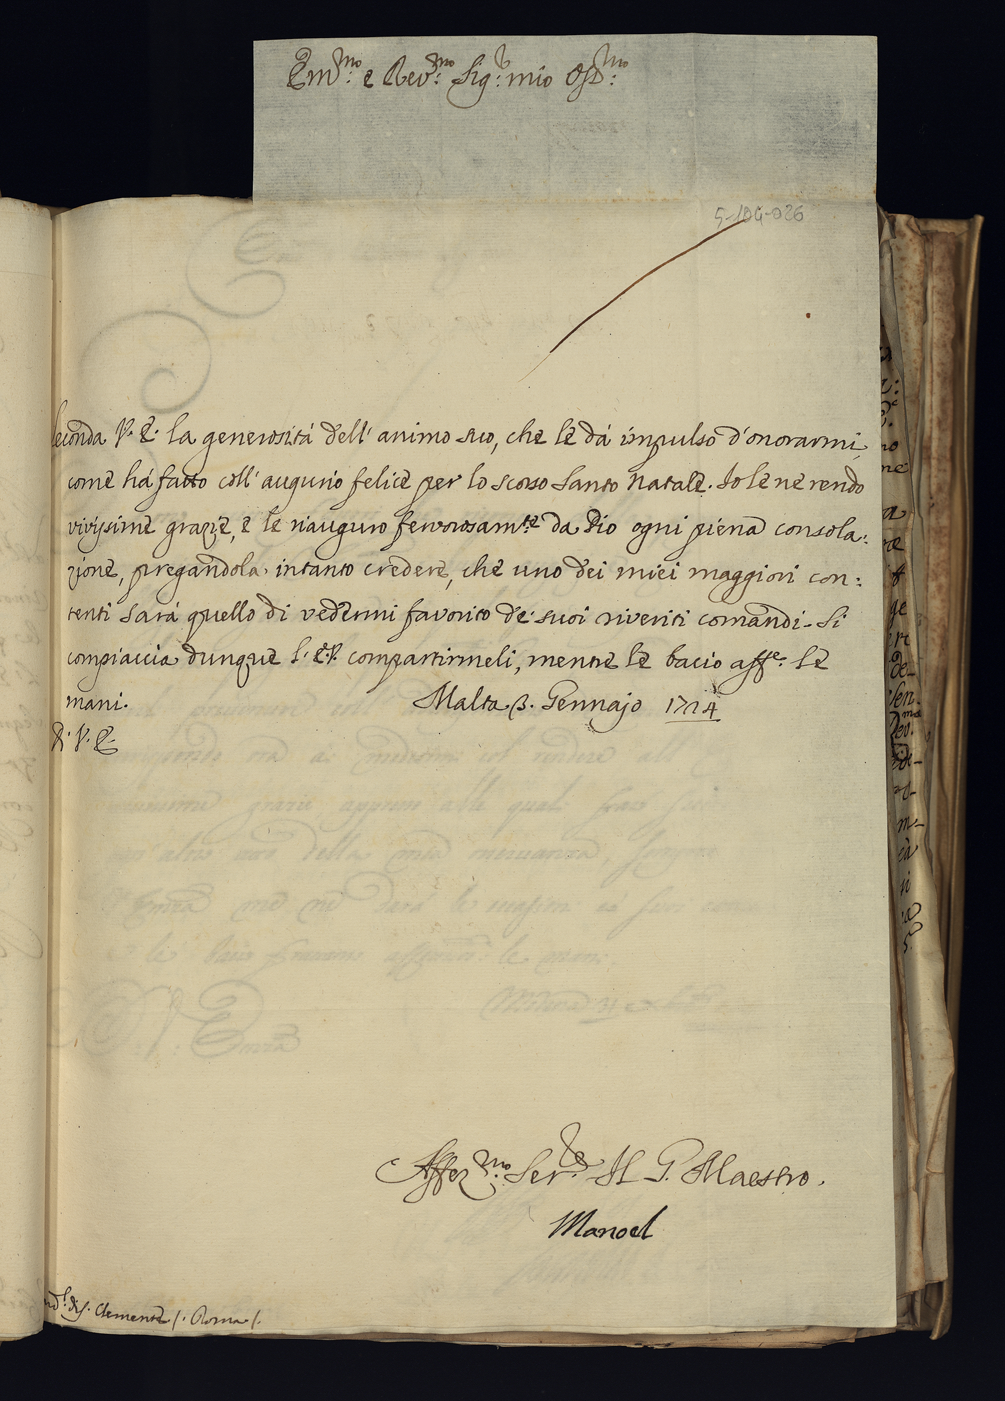 Em.mo e Rev.mo Sig.r mio Oss.mo
5-104-026
Seconda V. E. la generosità dell' animo suo, che le dà impulso d'onorarmi,
come há fatto coll' augurio felice per lo scorso Santo Natale. Io le ne rendo
vivissime grazie, e le riauguro fervorosam.te da Dio ogni piena consola:
zione, pregandola intanto credere, che uno dei miei maggiori con:
tenti sará quello di vedermi favorito de' suoi riveriti comandi. Si
compiaccia dunque compartirmeli, mentre le bacio aff.e le
mani.
Malta 3. Gennajo 1724
Di V. E.
Affez.mo Ser.re Il G. Maestro.
Manoel
di S. Clemente /. Roma /.